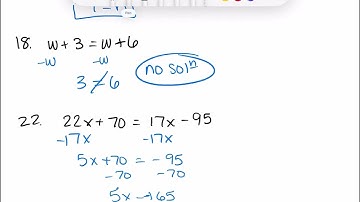 18. w + 3 = w + 6
-w -w
3 ≠ 6 no solⁿ
22. 22x + 70 = 17x - 95
-17x -17x
5x + 70 = - 95
- 70 - 70
5x → 65